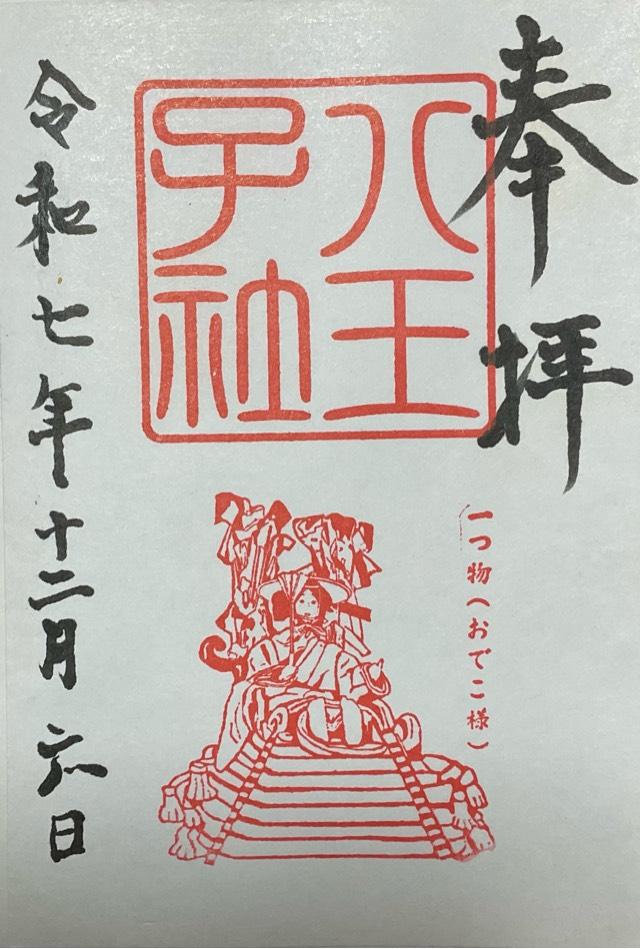 奉拝
八王子社
一つ物(おでこ様)
令和七年十二月六日